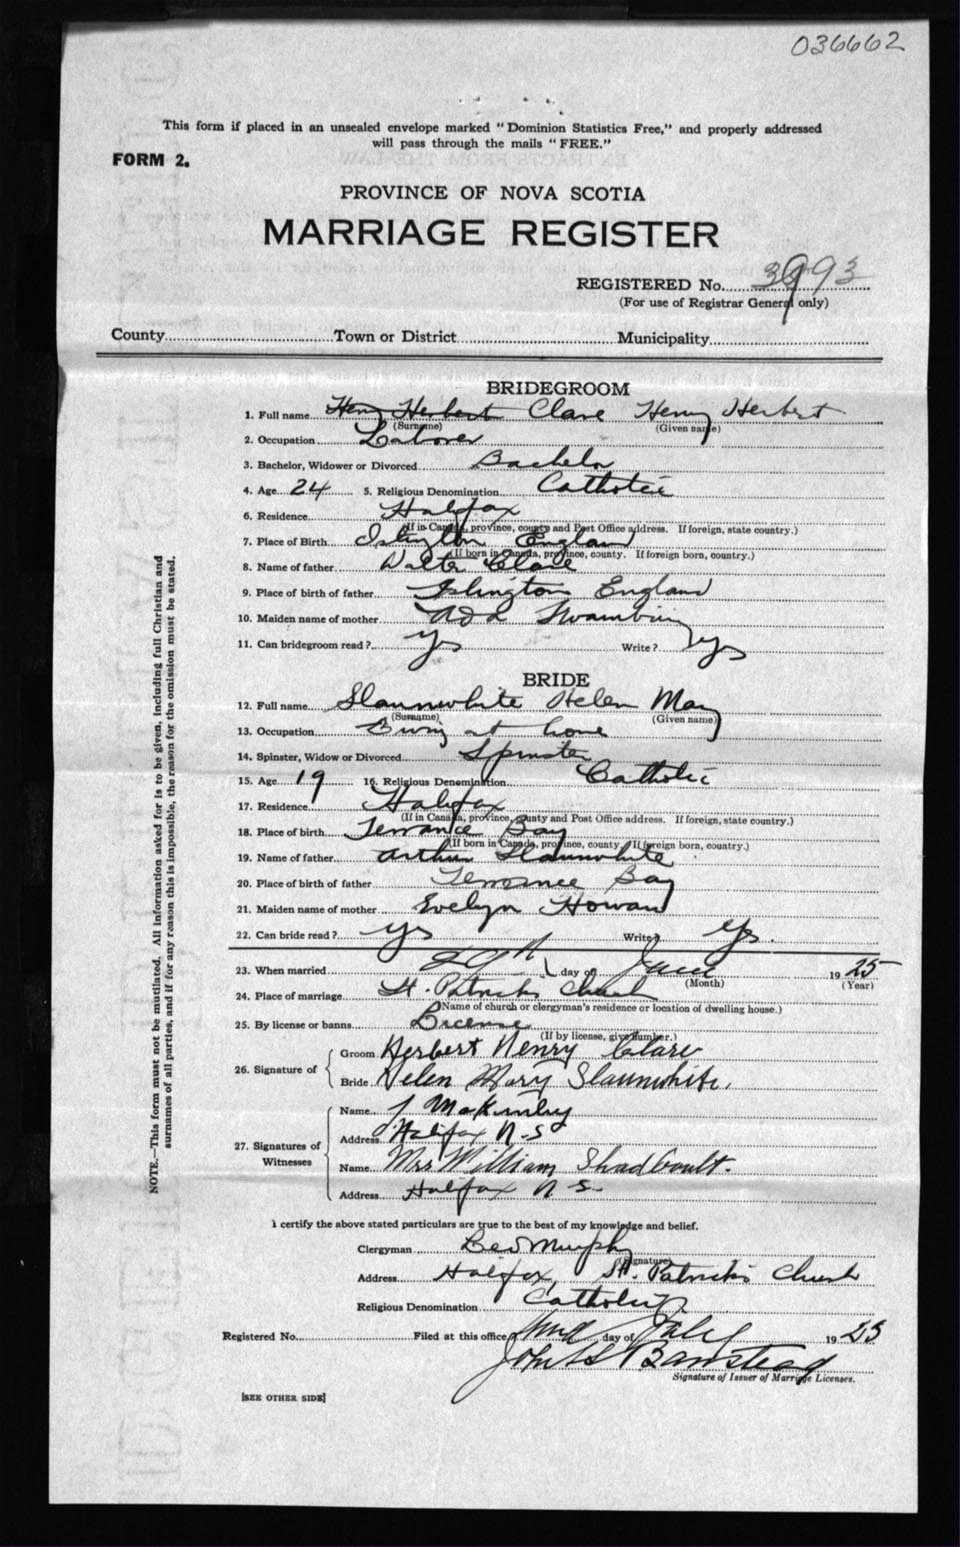 036662
This form if placed in an unsealed envelope marked "Dominion Statistics Free," and properly addressed
will pass through the mails "FREE."
FORM 2.
PROVINCE OF NOVA SCOTIA
MARRIAGE REGISTER
REGISTERED No. 3993
(For use of Registrar General only)
County Town or District Municipality
BRIDEGROOM
1. Full name Henry Herbert Clare Henry Herbert
(Surname) (Given name)
2. Occupation Laborer
3. Bachelor, Widower or Divorced Bachelor
4. Age 24 5. Religious Denomination Catholic
6. Residence Halifax
(If in Canada, province, county and Post Office address. If foreign, state country.)
7. Place of Birth Islington England
(If born in Canada, province, county. If foreign born, country.)
8. Name of father Walter Clare
9. Place of birth of father Islington England
10. Maiden name of mother Ada
11. Can bridegroom read? Yes Write? Yes
BRIDE
12. Full name Slaunwhite Helen May
(Surname) (Given name)
13. Occupation at home
14. Spinster, Widow or Divorced Spinster
15. Age 19 16. Religious Denomination Catholic
17. Residence Halifax
(If in Canada, province, county and Post Office address. If foreign, state country.)
18. Place of birth Terrance Bay
(If born in Canada, province, county. If foreign born, country.)
19. Name of father Arthur Slaunwhite
20. Place of birth of father Terrance Bay
21. Maiden name of mother Evelyn Howard
22. Can bride read? Yes Write? Yes.
23. When married 29th day of June 1925
(Month) (Year)
24. Place of marriage St. Patrick's Church
(Name of church or clergyman's residence or location of dwelling house.)
25. By license or banns License
(If by license, give number.)
26. Signature of Groom Herbert Henry Clare
Bride Helen Mary Slaunwhite.
27. Signatures of Witnesses
Name J McKinley
Address Halifax N.S
Name Mrs William Shadboult.
Address Halifax N.S.
I certify the above stated particulars are true to the best of my knowledge and belief.
Clergyman Murphy
(Signature)
Address Halifax, St. Patrick's Church
Religious Denomination Catholic
Registered No. Filed at this office day of July 1925
John Banstead
Signature of Issuer of Marriage Licenses.
[SEE OTHER SIDE]
NOTE.—This form must not be mutilated. All information asked for is to be given, including full Christian and
surnames of all parties, and if for any reason this is impossible, the reason for the omission must be stated.